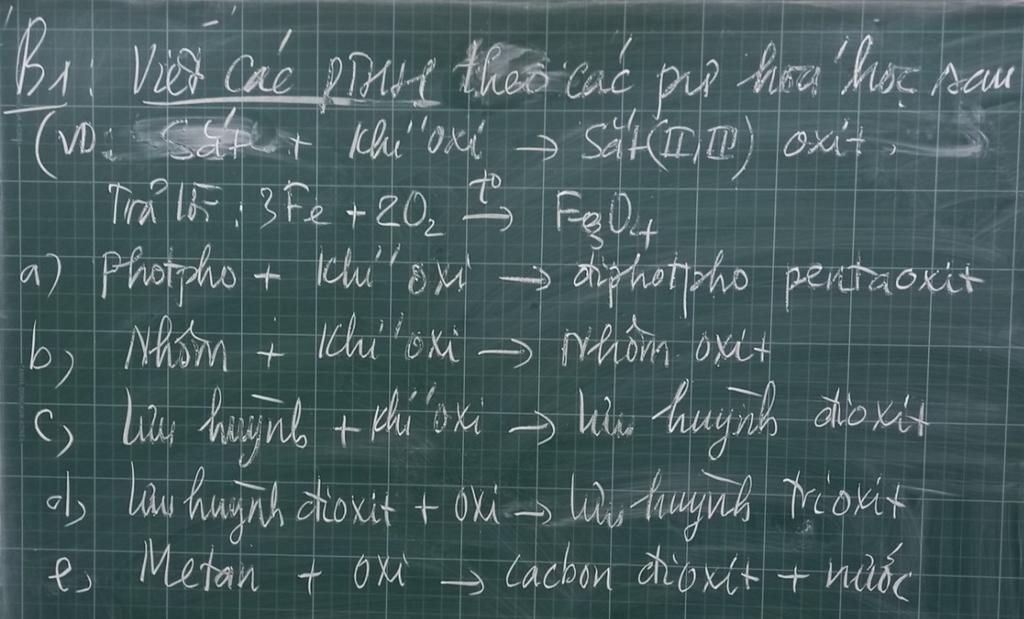 B1: Viết các PTHH theo các pư hóa học sau
(VD: Sắt + khí oxi → Sắt(II,III) oxit.
Trả lời: 3Fe + 2O₂ t° → Fe₃O₄
a) photpho + khí oxi → điphotpho pentaoxit
b) Nhôm + khí oxi → Nhôm oxit
c) lưu huỳnh + khí oxi → lưu huỳnh đioxit
d) lưu huỳnh đioxit + oxi → lưu huỳnh trioxit
e) Metan + oxi → cacbon đioxit + nước